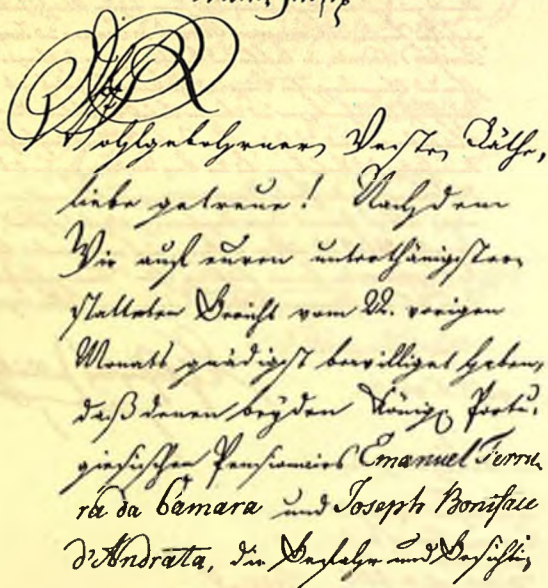 Wohlgebohrner, Veste, Räthe,
liebe getreue! Nachdem
Wir auf euren unterthänigst er-
statteten Bericht vom 22. vorigen
Monats gnädigst bewilliget haben,
daß denen beyden Königl. Portu-
giesischen Pensionairs Emanuel Ferrei-
ra da Camara und Joseph Boniface
d'Andrata, die Befahr- und Besichti-